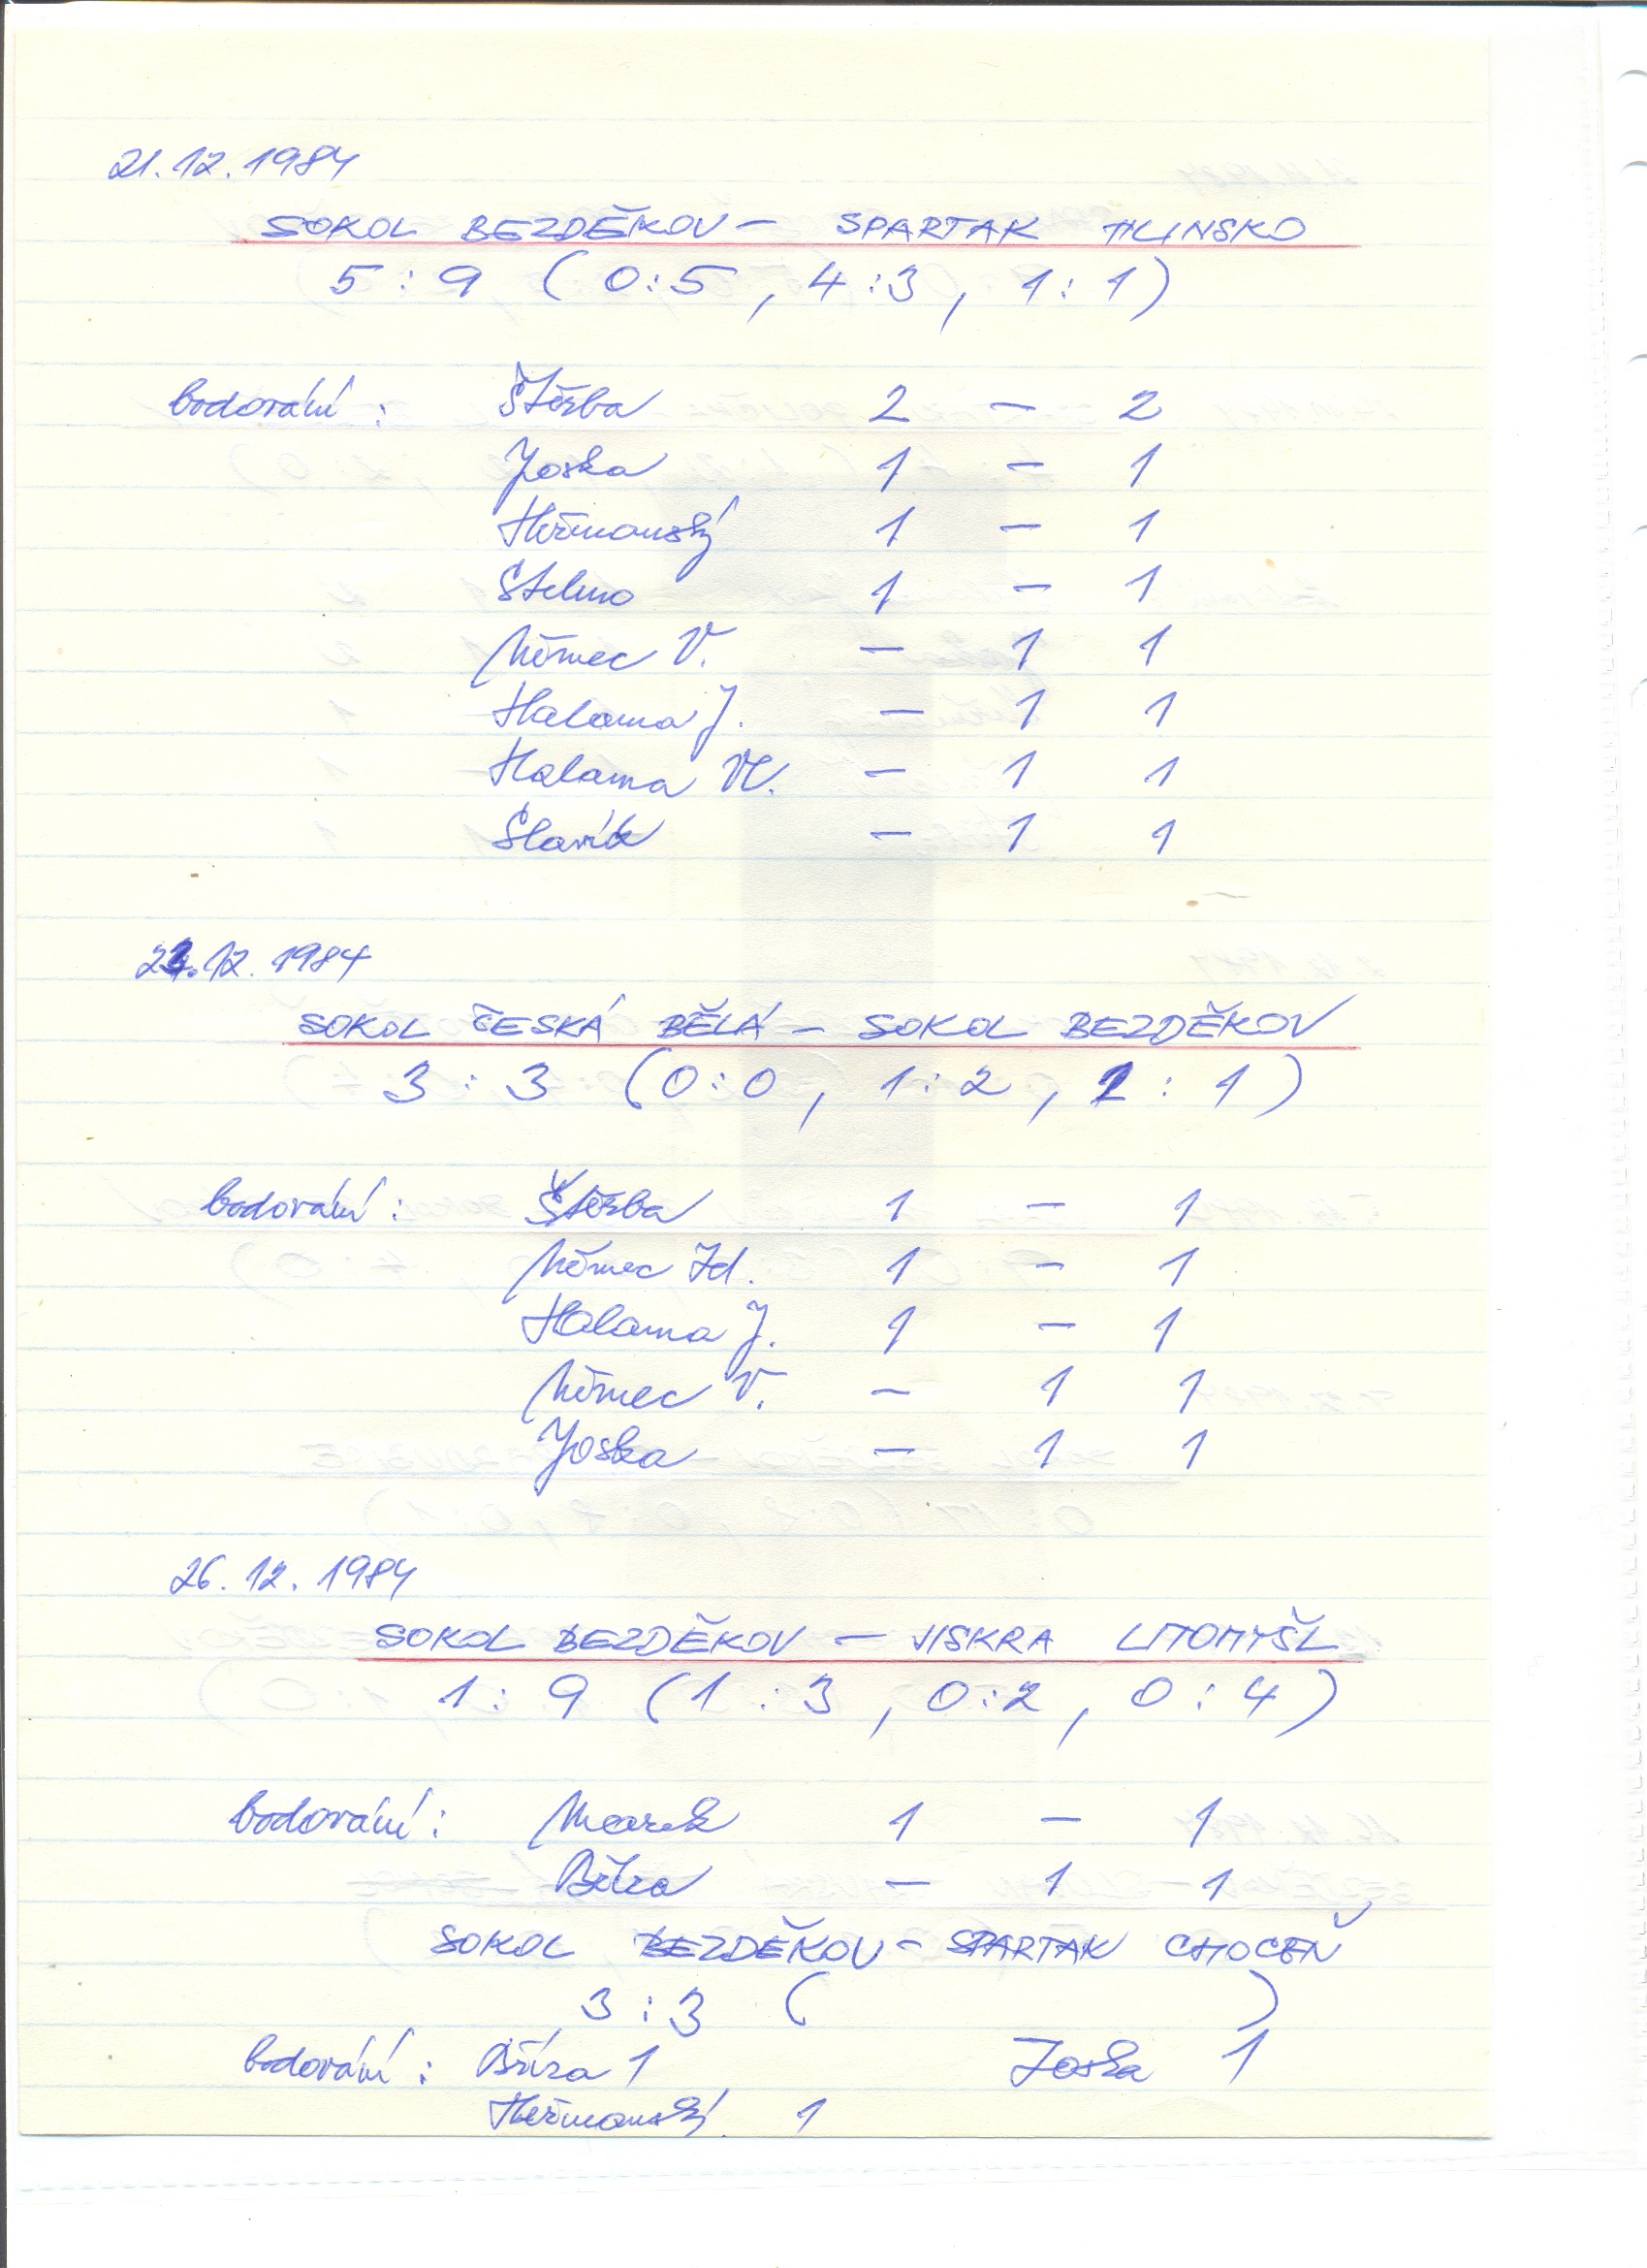 21.12.1984
SOKOL BEZDĚKOV - SPARTAK HLINSKO
5 : 9 ( 0:5 , 4:3 , 1:1 )
bodování : Štěrba 2 - 2
Joska 1 - 1
Heřmanský 1 - 1
Stelmo 1 - 1
Němec V. - 1 1
Halama J. - 1 1
Halama Vl. - 1 1
Slavík - 1 1
23.12.1984
SOKOL ČESKÁ BĚLÁ - SOKOL BEZDĚKOV
3 : 3 ( 0:0 , 1:2 , 2:1 )
bodování : Štěrba 1 - 1
Němec Zd. 1 - 1
Halama J. 1 - 1
Němec V. - 1 1
Joska - 1 1
26.12.1984
SOKOL BEZDĚKOV - JISKRA LITOMYŠL
1 : 9 ( 1 : 3 , 0:2 , 0:4 )
bodování : Marek 1 - 1
Bříza - 1 1
SOKOL BEZDĚKOV - SPARTAK CHOCEŇ
3 : 3 ( )
bodování : Bříza 1 Joska 1
Heřmanský 1